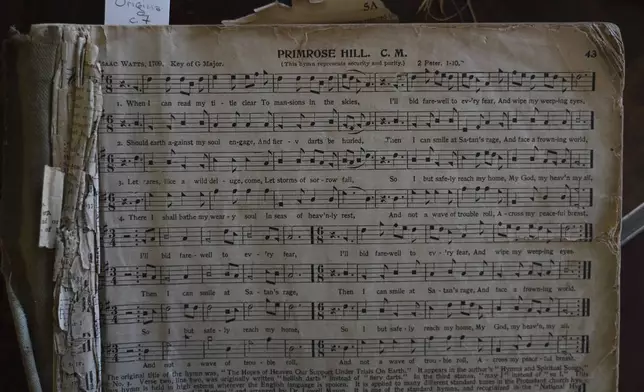 Original
C7
SA
PRIMROSE HILL. C. M. 43
ISAAC WATTS, 1709. Key of G Major. (This hymn represents security and purity.) 2 Peter. 1-10."
1. When I can read my ti - tle clear To man-sions in the skies, I'll bid fare-well to ev-'ry fear, And wipe my weep-ing eyes.
2. Should earth a-gainst my soul en-gage, And darts be hurled, Then I can smile at Sa-tan's rage, And face a frown-ing world,
3. Let cares, like a wild del - uge, come, Let storms of sor - row fall, So I but safe-ly reach my home, My God, my heav'n my all,
4. There I shall bathe my wear - y soul In seas of heav'n-ly rest, And not a wave of trouble roll, A - cross my peace-ful breast,
I'll bid fare - well to ev - 'ry fear, I'll bid fare-well to ev - 'ry fear, And wipe my weep-ing eyes.
Then I can smile at Sa - tan's rage, Then I can smile at Sa - tan's rage, And face a frown-ing world.
So I but safe - ly reach my home, So I but safe - ly reach my home, My God, my heav'n, my all.
And not a wave of trou - ble roll, And not a wave of trou - ble roll, A - cross my peace - ful breast.
The original title of the hymn was, "The Hopes of Heaven Our Support Under Trials On Earth." It appears in the author's "Hymns and Spiritual Songs,"
No. 1. Verse two, line two, was originally written "hellish darts" instead of